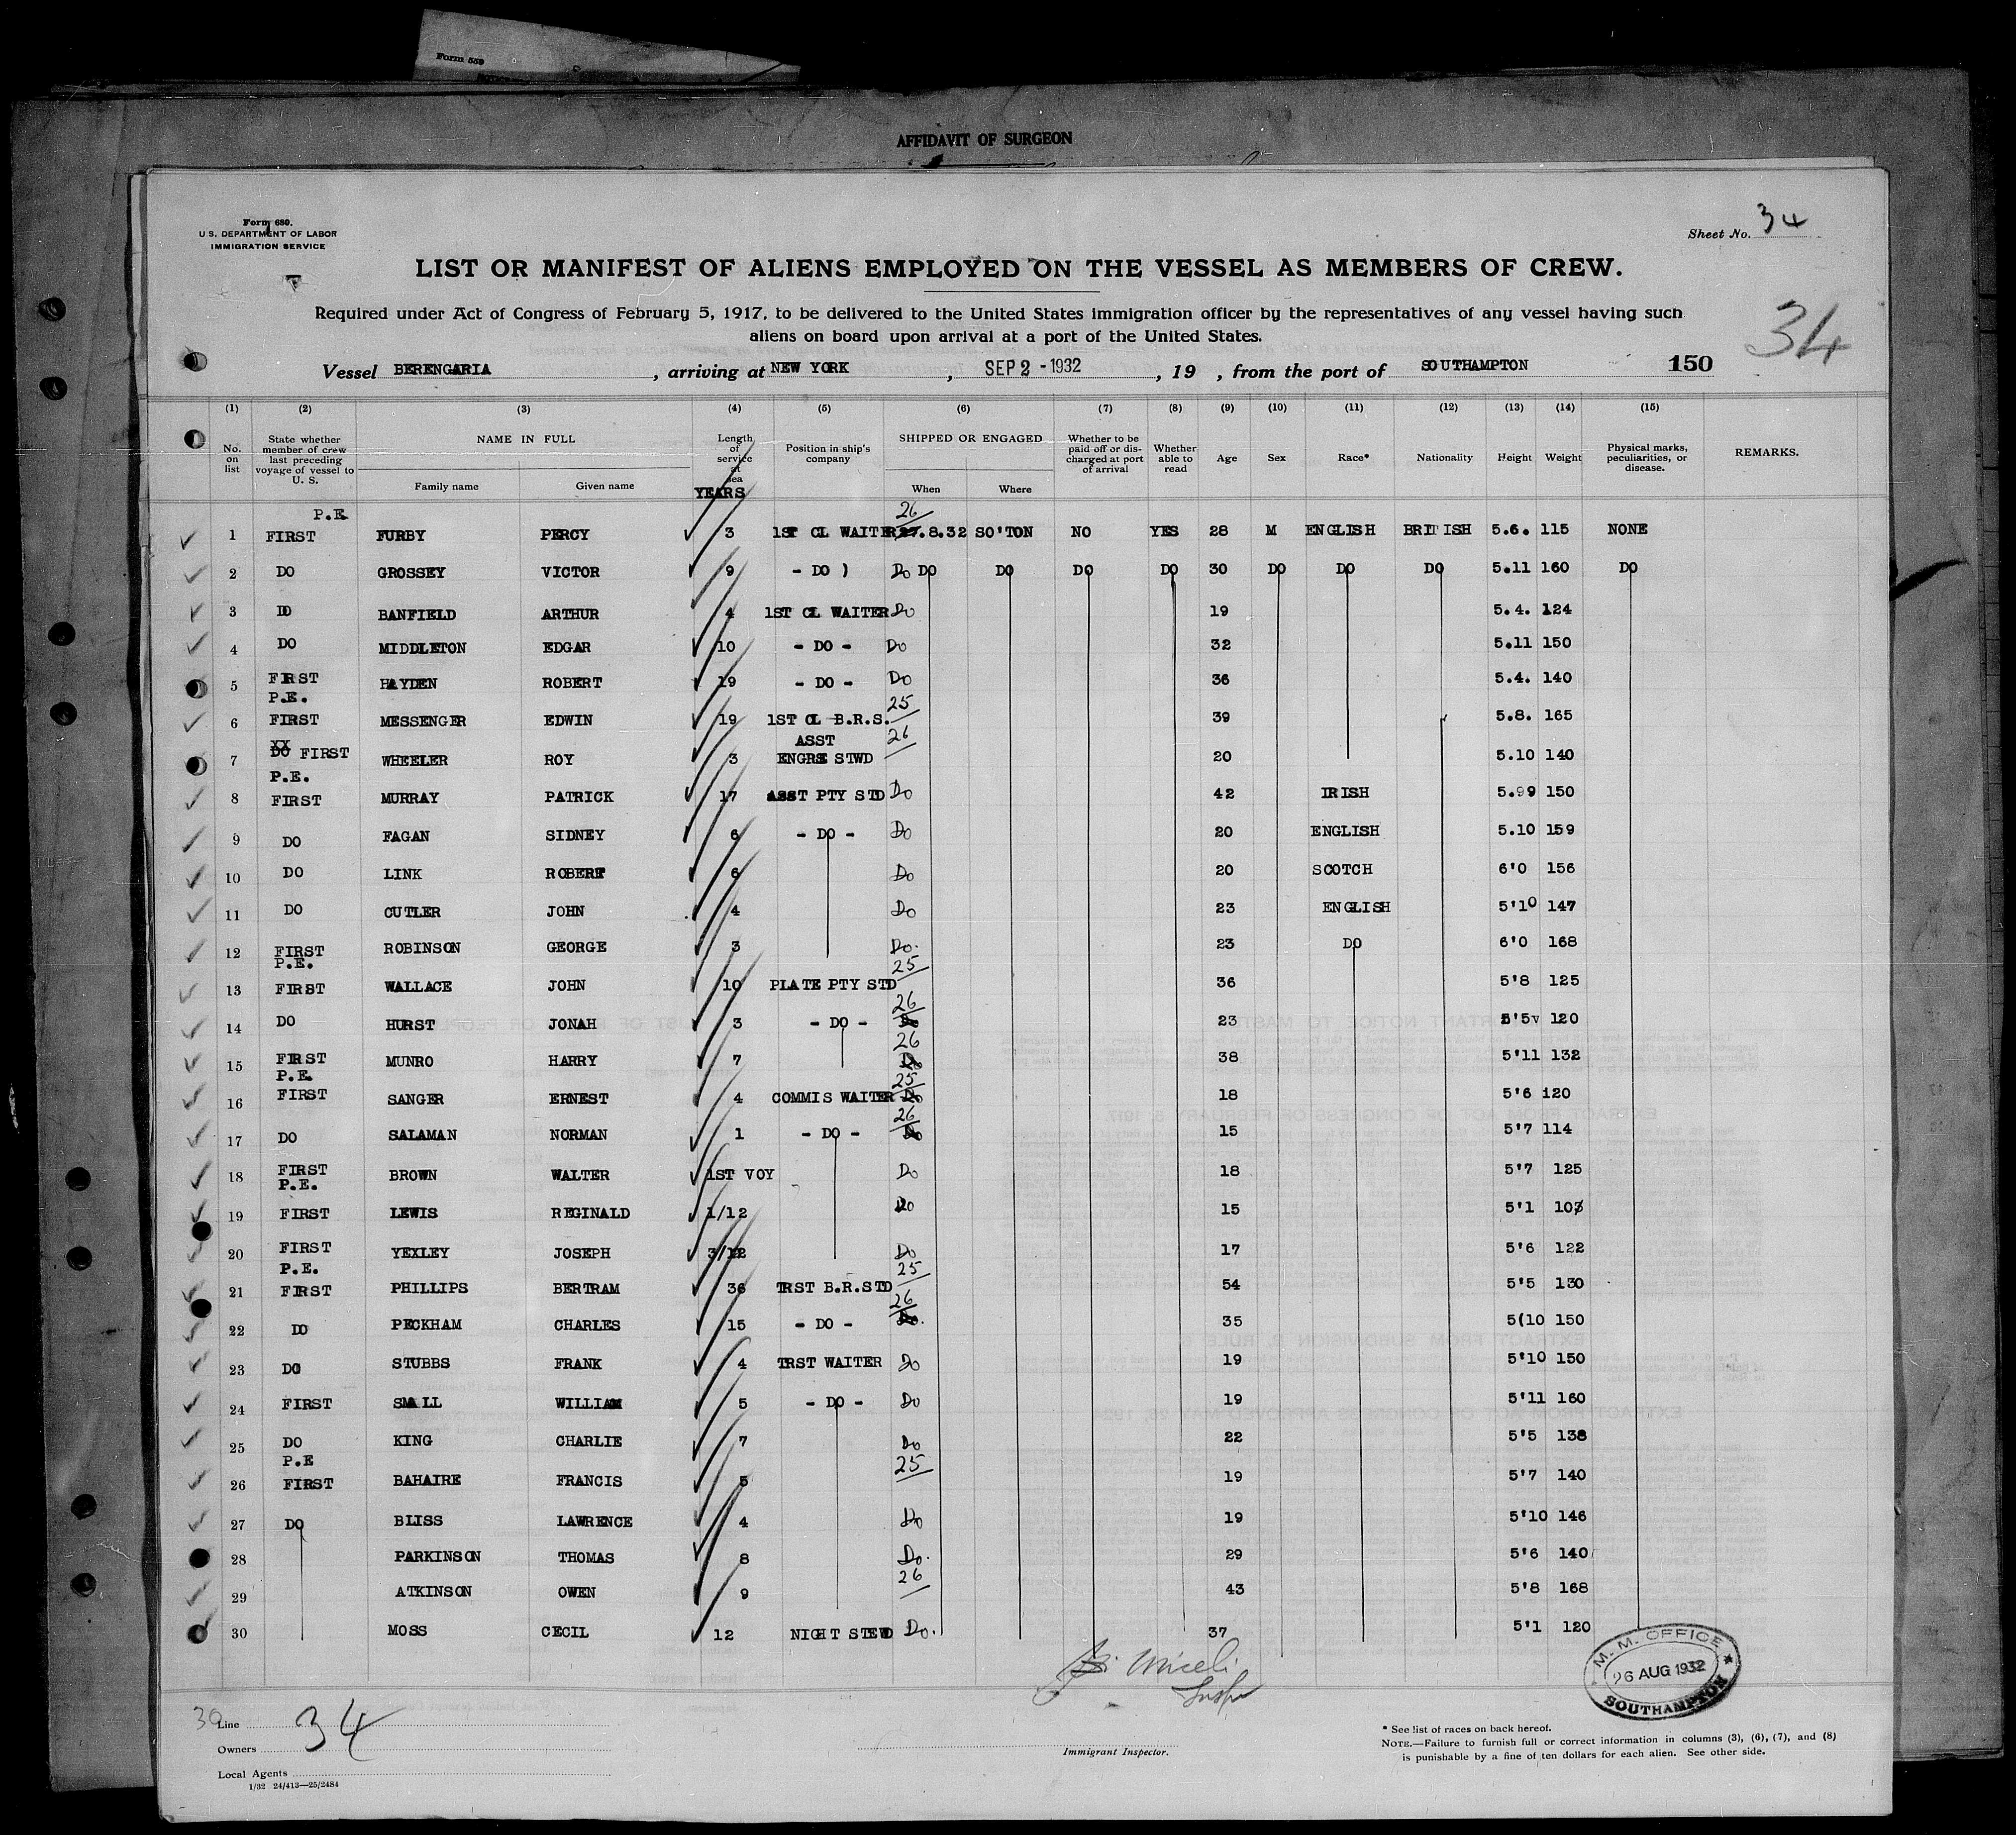 Form 559
AFFIDAVIT OF SURGEON
Form 680.
U. S. DEPARTMENT OF LABOR
IMMIGRATION SERVICE
Sheet No. 34
LIST OR MANIFEST OF ALIENS EMPLOYED ON THE VESSEL AS MEMBERS OF CREW.
Required under Act of Congress of February 5, 1917, to be delivered to the United States immigration officer by the representatives of any vessel having such
aliens on board upon arrival at a port of the United States.
34
Vessel BERENGARIA, arriving at NEW YORK, SEP 2 - 1932, 19 , from the port of SOUTHAMPTON 150
(1) (2) (3) (4) (5) (6) (7) (8) (9) (10) (11) (12) (13) (14) (15)
No. on list State whether member of crew last preceding voyage of vessel to U. S. NAME IN FULL Family name Given name Length of service at sea YEARS Position in ship's company SHIPPED OR ENGAGED When Where Whether to be paid off or discharged at port of arrival Whether able to read Age Sex Race* Nationality Height Weight Physical marks, peculiarities, or disease. REMARKS.
P.E. 26
1 FIRST FURBY PERCY 3 1ST CL WAITER 27.8.32 SO'TON NO YES 28 M ENGLISH BRITISH 5.6. 115 NONE
2 DO GROSSEY VICTOR 9 - DO ) Do DO DO DO DO 30 DO DO DO 5.11 160 DO
3 DO BANFIELD ARTHUR 4 1ST CL WAITER Do 19 5.4. 124
4 DO MIDDLETON EDGAR 10 - DO - Do 32 5.11 150
5 FIRST HAYDEN ROBERT 19 - DO - Do 36 5.4. 140
P.E. 25
6 FIRST MESSENGER EDWIN 19 1ST CL B.R.S. 39 5.8. 165
XX ASST 26
7 DO FIRST WHEELER ROY 3 ENGRS STWD 20 5.10 140
P.E.
8 FIRST MURRAY PATRICK 17 ASST PTY STD Do 42 IRISH 5.99 150
9 DO FAGAN SIDNEY 6 - DO - Do 20 ENGLISH 5.10 159
10 DO LINK ROBERT 6 Do 20 SCOTCH 6'0 156
11 DO CUTLER JOHN 4 Do 23 ENGLISH 5'10 147
12 FIRST ROBINSON GEORGE 3 Do. 23 DO 6'0 168
P.E. 25
13 FIRST WALLACE JOHN 10 PLATE PTY STD 36 5'8 125
26
14 DO HURST JONAH 3 - DO - Do 23 5'5 120
26
15 FIRST MUNRO HARRY 7 Do 38 5'11 132
P.E. 25
16 FIRST SANGER ERNEST 4 COMMIS WAITER Do 18 5'6 120
26
17 DO SALAMAN NORMAN 1 - DO - Do 15 5'7 114
18 FIRST BROWN WALTER 1ST VOY Do 18 5'7 125
P.E.
19 FIRST LEWIS REGINALD 1/12 Do 15 5'1 103
20 FIRST YEXLEY JOSEPH 3/12 Do 17 5'6 122
P.E. 25
21 FIRST PHILLIPS BERTRAM 36 TRST B.R.STD 54 5'5 130
26
22 DO PECKHAM CHARLES 15 - DO - Do. 35 5(10 150
23 DO STUBBS FRANK 4 TRST WAITER Do 19 5'10 150
24 FIRST SMALL WILLIAM 5 - DO - Do 19 5'11 160
25 DO KING CHARLIE 7 Do 22 5'5 138
P.E 25
26 FIRST BAHAIRE FRANCIS 5 19 5'7 140
27 DO BLISS LAWRENCE 4 Do 19 5'10 146
28 PARKINSON THOMAS 8 Do. 29 5'6 140
26
29 ATKINSON OWEN 9 43 5'8 168
30 MOSS CECIL 12 NIGHT STEWD Do. 37 5'1 120
Miceli
Inspr
M. M. OFFICE
26 AUG 1932
SOUTHAMPTON
30 Line
34
Owners
Local Agents
1/32 24/413—25/2484
Immigrant Inspector.
* See list of races on back hereof.
NOTE.—Failure to furnish full or correct information in columns (3), (6), (7), and (8)
is punishable by a fine of ten dollars for each alien. See other side.